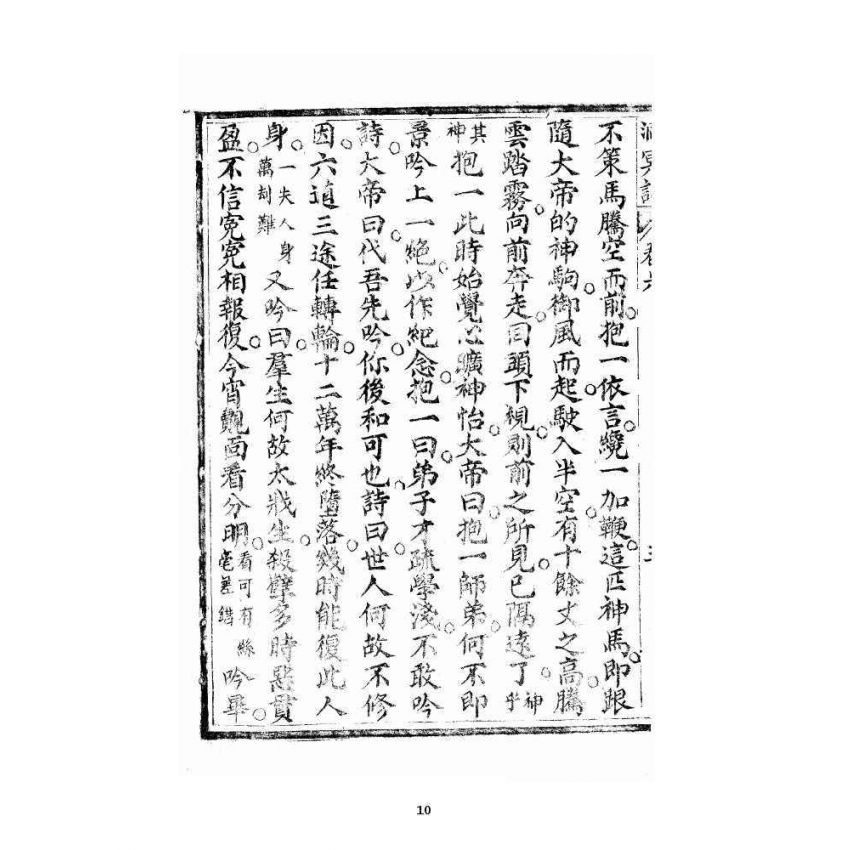 洞冥記 卷六 三
不策馬騰空而前抱一依言纔一加鞭這匹神馬即跟
隨大帝的神駒御風而起駛入半空有十餘丈之高騰
雲踏霧向前奔走囘頭下視則前之所見已隔遠了神乎
其神抱一此時始覺心曠神怡大帝曰抱一師弟何不即
景吟上一絕以作紀念抱一曰弟子才疏學淺不敢吟
詩大帝曰代吾先吟你後和可也詩曰世人何故不修
因六道三途任轉輪十二萬年終墮落幾時能復此人
身一失人身萬刦難又吟曰羣生何故太戕生殺孽多時惡貫
盈不信寃寃相報復今宵覿面看分明看可有絲毫差錯吟畢
10